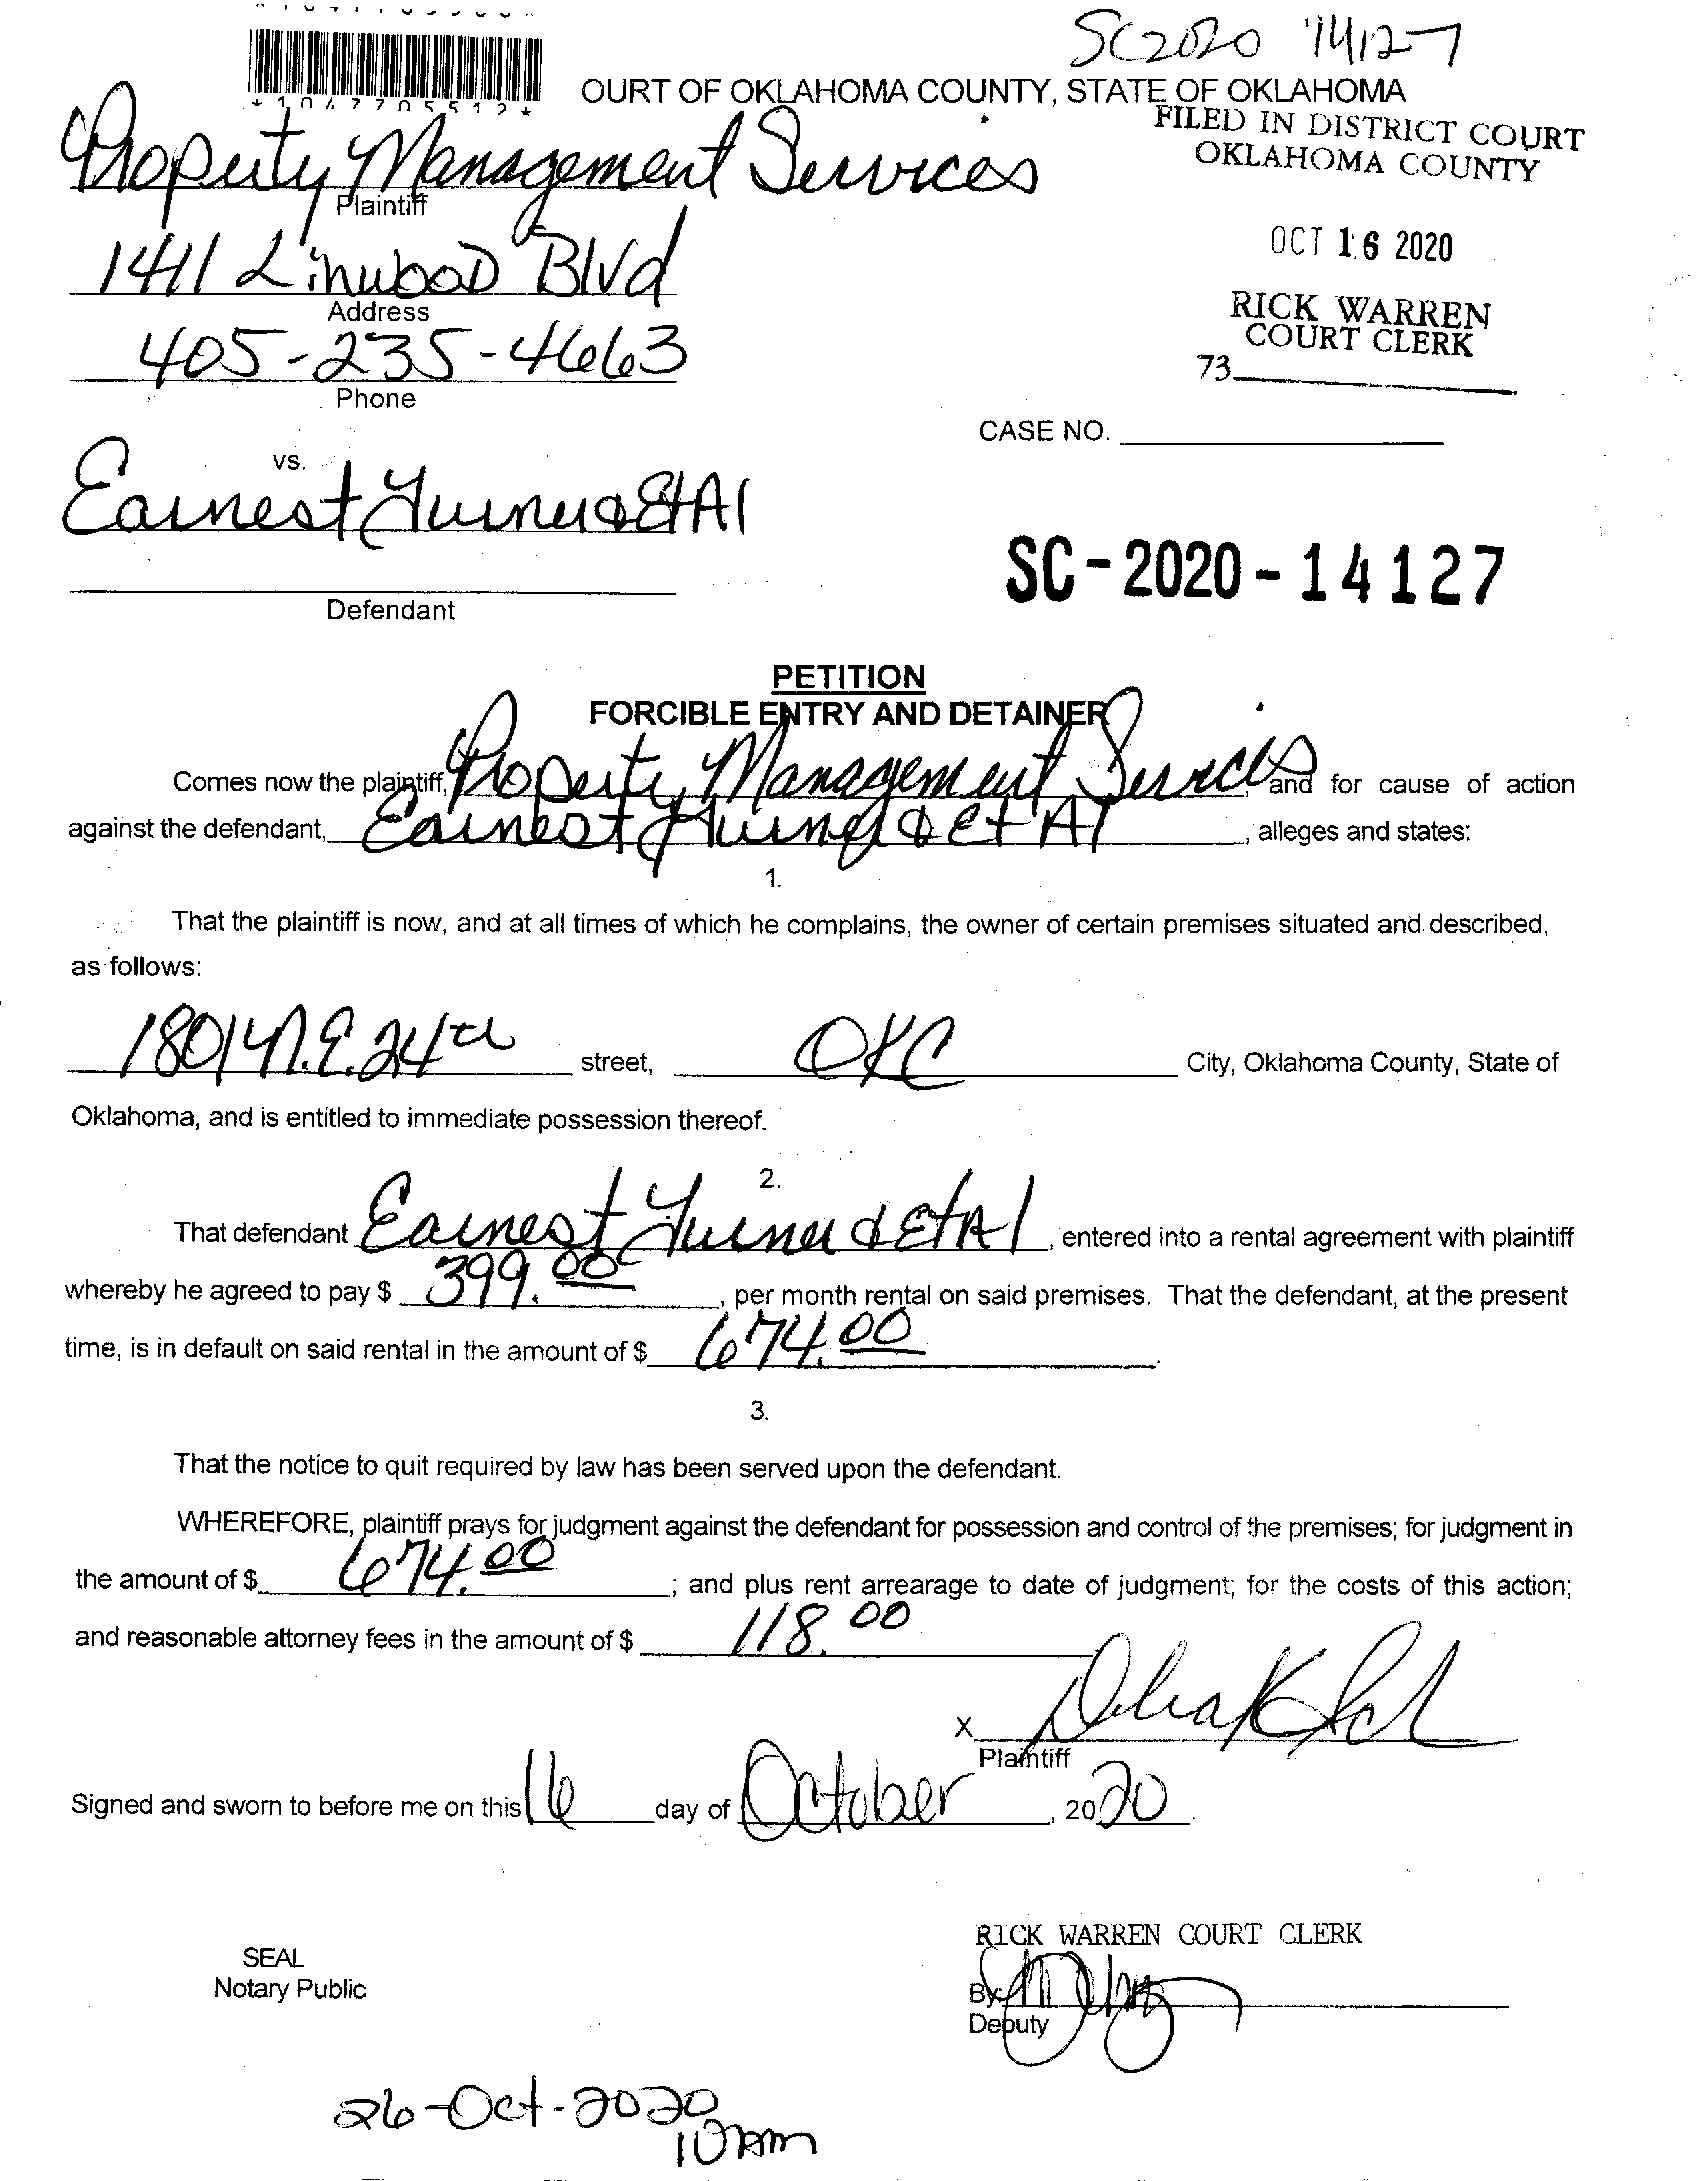 SC2020 14127
*1047705512*
OURT OF OKLAHOMA COUNTY, STATE OF OKLAHOMA
FILED IN DISTRICT COURT
OKLAHOMA COUNTY
Property Management Services
Plaintiff
OCT 16 2020
1411 Linwood Blvd
Address
RICK WARREN
COURT CLERK
405-235-4663
73
Phone
CASE NO.
vs.
Earnest Turner & Et Al
SC-2020-14127
Defendant
PETITION
FORCIBLE ENTRY AND DETAINER
Comes now the plaintiff, Property Management Services, and for cause of action
against the defendant, Earnest Turner & Et Al, alleges and states:
1.
That the plaintiff is now, and at all times of which he complains, the owner of certain premises situated and described,
as follows:
1801 N.E. 24th street, OKC City, Oklahoma County, State of
Oklahoma, and is entitled to immediate possession thereof.
2.
That defendant Earnest Turner & Et Al, entered into a rental agreement with plaintiff
whereby he agreed to pay $ 399.00, per month rental on said premises. That the defendant, at the present
time, is in default on said rental in the amount of $ 674.00.
3.
That the notice to quit required by law has been served upon the defendant.
WHEREFORE, plaintiff prays for judgment against the defendant for possession and control of the premises; for judgment in
the amount of $ 674.00; and plus rent arrearage to date of judgment; for the costs of this action;
and reasonable attorney fees in the amount of $ 118.00
X
Plaintiff
Signed and sworn to before me on this 16 day of October, 2020
RICK WARREN COURT CLERK
SEAL
Notary Public
By
Deputy
26-Oct-2020
10am